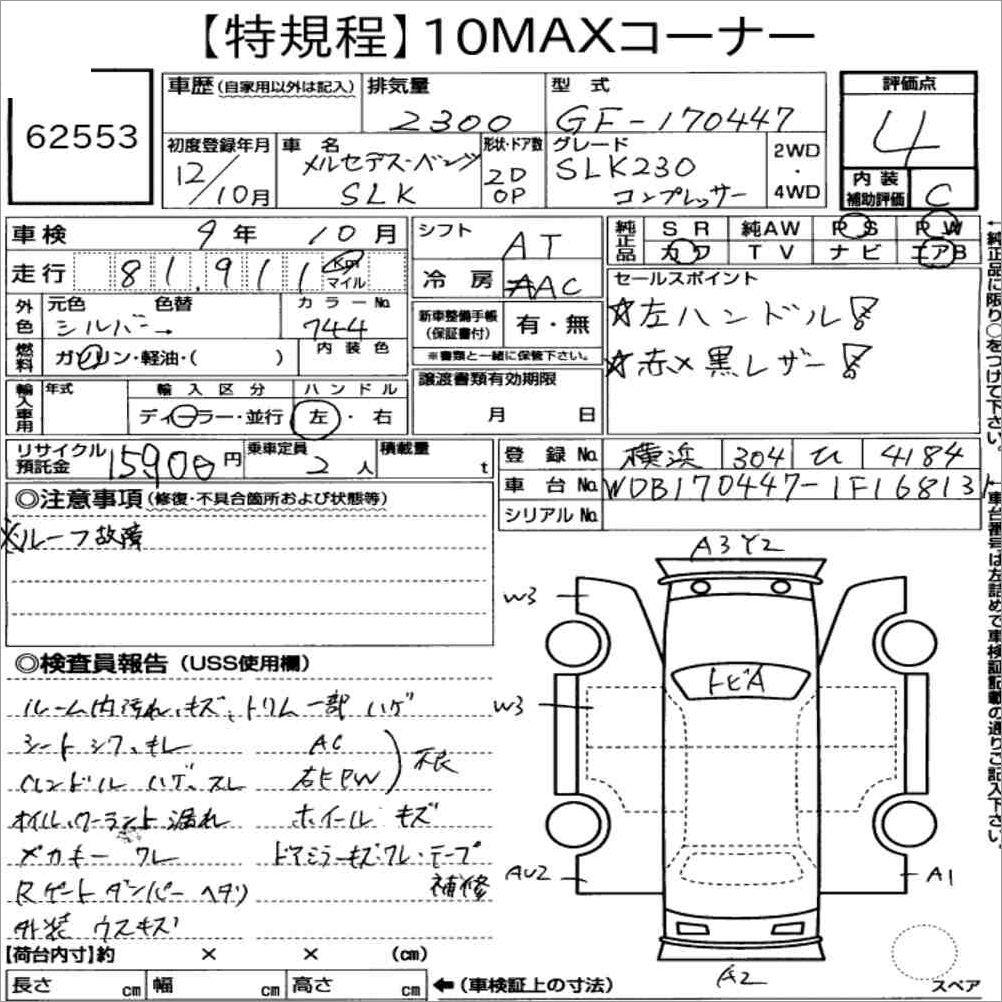 【特規程】10MAXコーナー
62553
車歴(自家用以外は記入) 排気量 2300 型式 GF-170447 評価点 4
初度登録年月 12/10月 車名 メルセデス・ベンツ SLK 形状・ドア数 2D OP グレード SLK230 コンプレッサー 2WD・4WD 内装補助評価 C
車検 9年 10月 シフト AT 純正品 SR 純AW PS PW
走行 81,911 Km マイル 冷房 AAC カワ TV ナビ エアB
外色 元色 シルバー→ 色替 カラーNo. 744 新車整備手帳(保証書付) 有・無 セールスポイント
☆左ハンドル!
☆赤×黒レザー!
燃料 ガソリン・軽油・( ) 内装色 ※書類と一緒に保管下さい。
輸入車用 年式 輸入区分 ディーラー・並行 ハンドル 左・右 譲渡書類有効期限 月 日
←純正品に限り○をつけて下さい。
リサイクル預託金 15900円 乗車定員 2人 積載量 t
登録No. 横浜 304 ひ 4184
車台No. WDB170447-1F168131
シリアルNo.
←車台番号は左詰めで車検証記載の通りご記入下さい。
◎注意事項(修復・不具合箇所および状態等)
※ルーフ故障
◎検査員報告(USS使用欄)
ルーム内汚れ、キズ、トリム一部ハゲ
シートシワ、モレ AC
ハンドルハゲ、スレ 右PW 不良
オイル、クーラント漏れ ホイールキズ
メカキーワレ ドアミラーキズワレ・テープ
Rゲートダンパーヘタリ 補修
外装ウスキズ
A3 Y2
W3
トビA
W3
AU2
A1
A2
スペア
【荷台内寸】約 × × (cm)
長さ cm 幅 cm 高さ cm ←(車検証上の寸法)